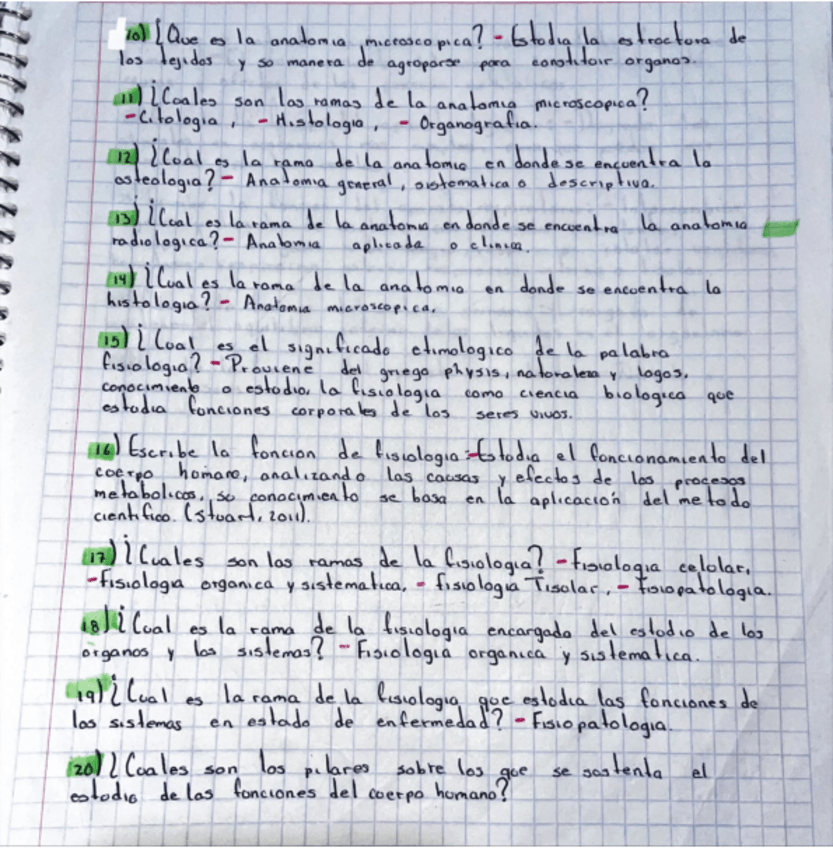 10) ¿Que es la anatomia microscopica? - Estudia la estructura de
los tejidos y su manera de agruparse para constituir organos.
11) ¿Cuales son las ramas de la anatomia microscopica?
- Citologia, - Histologia, - Organografia.
12) ¿Cual es la rama de la anatomia en donde se encuentra la
osteologia? - Anatomia general, sistematica o descriptiva.
13) ¿Cual es la rama de la anatomia en donde se encuentra la anatomia
radiologica? - Anatomia aplicada o clinica.
14) ¿Cual es la rama de la anatomia en donde se encuentra la
histologia? - Anatomia microscopica.
15) ¿Cual es el significado etimologico de la palabra
fisiologia? - Proviene del griego physis, naturaleza y logos,
conocimiento o estudio, la fisiologia como ciencia biologica que
estudia funciones corporales de los seres vivos.
16) Escribe la funcion de fisiologia: - Estudia el funcionamiento del
cuerpo humano, analizando las causas y efectos de los procesos
metabolicos, su conocimiento se basa en la aplicación del metodo
cientifico. (Stuart, 2011).
17) ¿Cuales son las ramas de la fisiologia? - fisiologia celular,
- fisiologia organica y sistematica, - fisiologia Tisular, - fisiopatologia.
18) ¿Cual es la rama de la fisiologia encargada del estudio de los
organos y los sistemas? - Fisiologia organica y sistematica.
19) ¿Cual es la rama de la fisiologia que estudia las funciones de
los sistemas en estado de enfermedad? - Fisiopatologia.
20) ¿Cuales son los pilares sobre los que se sostenta el
estudio de las funciones del cuerpo humano?